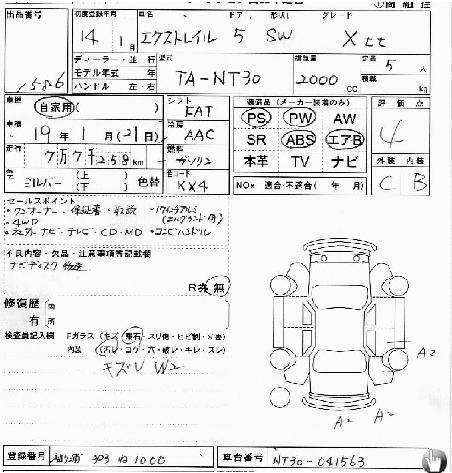 出品番号
1586
初度登録年月
14年 1月
車名
ドア
形状
グレード
エクストレイル 5 SW Xtt
ディーラー・並行
モデル年式
ハンドル 左・右
型式
TA-NT30
排気量
2000 cc
定員 5 人
積載 kg
車歴
自家用( )
シフト
FAT
車検
19年 1月(21日)
冷房
AAC
走行
7万7千258km
燃料
ガソリン
色
シルバー
(上)
(下)
色替
色コード
KX4
装備品(メーカー装着のみ)
PS PW AW
SR ABS エアB
本革 TV ナビ
NOx 適合・不適合( 年 月)
評価点
4
外装 内装
C B
セールスポイント
・ワンオーナー・保証書・取説
・4WD
・社外ナビ・テレビ・CD・MD
・コンビハンドル
不良内容・欠品・注意事項等記載欄
ナビディスク
R券 無
修復歴
有
箇所
検査員記入欄
Fガラス(キズ・飛石・スリ傷・ヒビ割・×有)
内装(汚レ・コゲ・穴・破レ・キレ・スレ)
キズU W2
A2
A2
A2
登録番号
303
1000
車台番号
NT30-041563